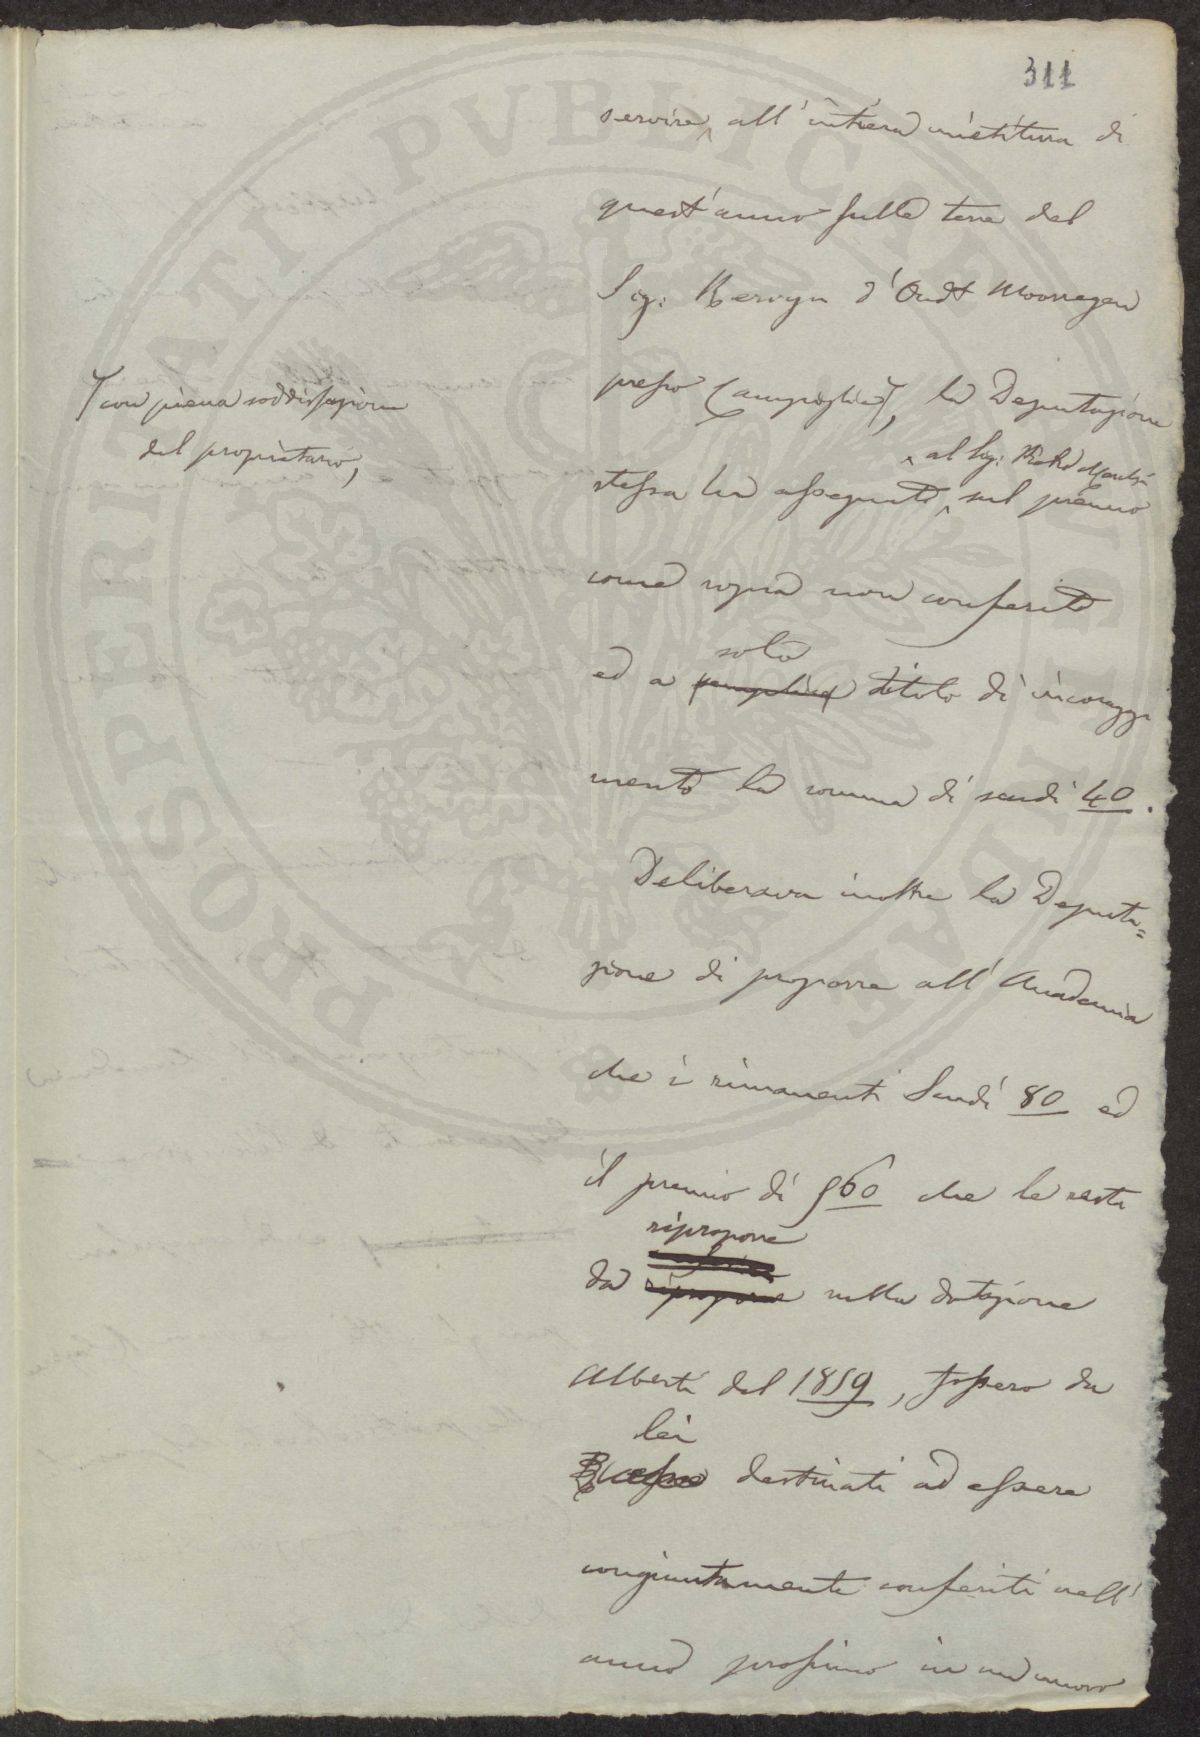 311
servire, all'intiera mietitura di
quest'anno sulle terre del
Sig: Kervyn d'Oudt Moorregen
presso Campiglia, la Deputazione
con piena soddisfazione
del proprietario,
al Sig: Pietro
stessa ha assegnato sul premio
come sopra non conferito
solo
ed a semplice titolo di incoraggi
mento la somma di scudi 40.
Deliberava inoltre la Deputa=
zione di proporre all'Accademia
che i rimanenti Scudi 80 ed
il premio di 960 che le resta
riproporre
da riproporre nella dotazione
Alberti del 1859, fossero da
lei
destinati ad essere
congiuntamente conferiti nell'
anno prossimo in un nuovo
PROSPERITATI PVBLICAE AVGENDAE